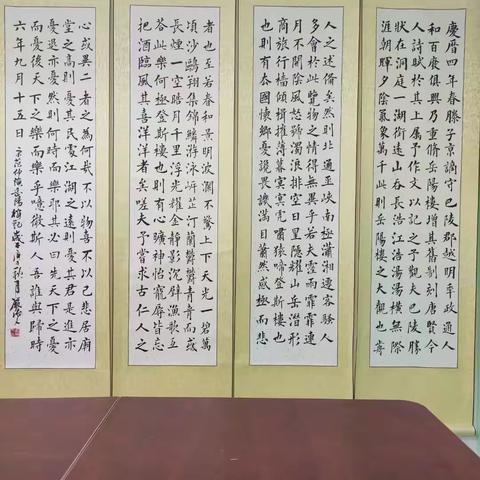 慶曆四年春滕子京謫守巴陵郡越明年政通人
和百廢俱興乃重脩岳陽樓增其舊制刻唐賢今
人詩賦於其上属予作文以記之予觀夫巴陵勝
狀在洞庭一湖銜遠山吞長江浩浩湯湯橫無際
涯朝暉夕陰氣象萬千此則岳陽樓之大觀也前
人之述備矣然則北通巫峽南極瀟湘遷客騷人
多會於此覽物之情得無異乎若夫霪雨霏霏連
月不開陰風怒號濁浪排空日星隱耀山岳潛形
商旅行檣傾楫摧薄暮冥冥虎嘯猿啼登斯樓也
也則有去國懷鄉憂讒畏譏滿目蕭然感極而悲
者也至若春和景明波瀾不驚上下天光一碧萬
頃沙鷗翔集錦鱗游泳岸芷汀蘭鬱鬱青青而或
長煙一空皓月千里浮光耀金靜影沉璧漁歌互
答此樂何極登斯樓也則有心曠神怡寵辱皆忘
把酒臨風其喜洋洋者矣嗟夫予嘗求古仁人之
心或異二者之為何哉不以物喜不以己悲居廟
堂之高則憂其民處江湖之遠則憂其君是進亦
憂退亦憂然則何時而樂耶其必曰先天下之憂
而憂後天下之樂而樂乎噫微斯人吾誰與歸時
六年九月十五日 宋范仲淹岳陽樓記歲在庚子秋月